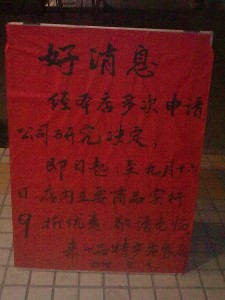 好消息
经本店多次申请
公司研究决定,
即日起 至九月十六
日店内主要商品实行
9折优惠 敬请光临